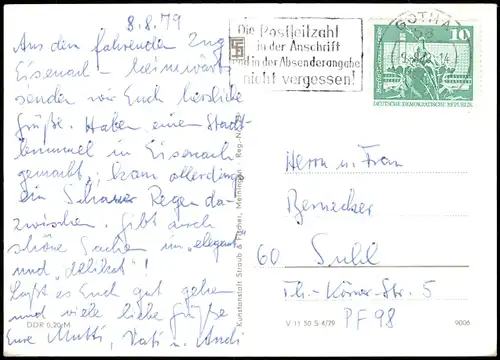 8.8.79
Aus dem fahrenden Zug
Eisenach – heimwärts
senden wir Euch herzliche
Grüße. Haben einen Stadt-
bummel in Eisenach
gemacht, kam allerdings
ein Schauer Regen da-
zwischen. Gibt auch
schöne Sachen im „elegant"
und „delikat"!
Laßt es Euch gut gehen
und viele liebe Grüße
Eure Mutti, Vati u. Andi
DDR 0,20 M
Kunstanstalt Straub & Fischer, Meiningen
Die Postleitzahl
in der Anschrift
und in der Absenderangabe
nicht vergessen!
GOTHA
58
10
DEUTSCHE DEMOKRATISCHE REPUBLIK
Herrn u. Frau
Bernecker
60 Suhl
Th.-Körner-Str. 5
PF 98
V 11 50 S 4/79
9006